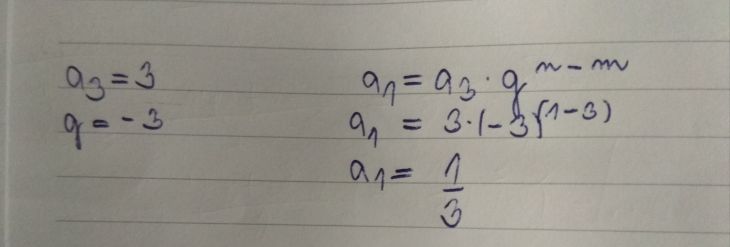 a₃ = 3
q = -3
a₁ = a₃ · q^(n-m)
a₁ = 3·(-3)^(1-3)
a₁ = 1/3